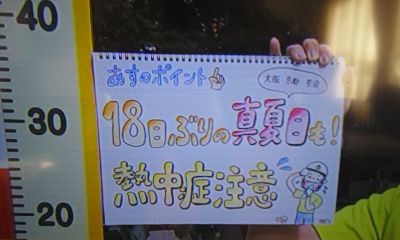 40
30
20
あすのポイント
大阪・京都・奈良
18日ぶりの真夏日も!
熱中症注意